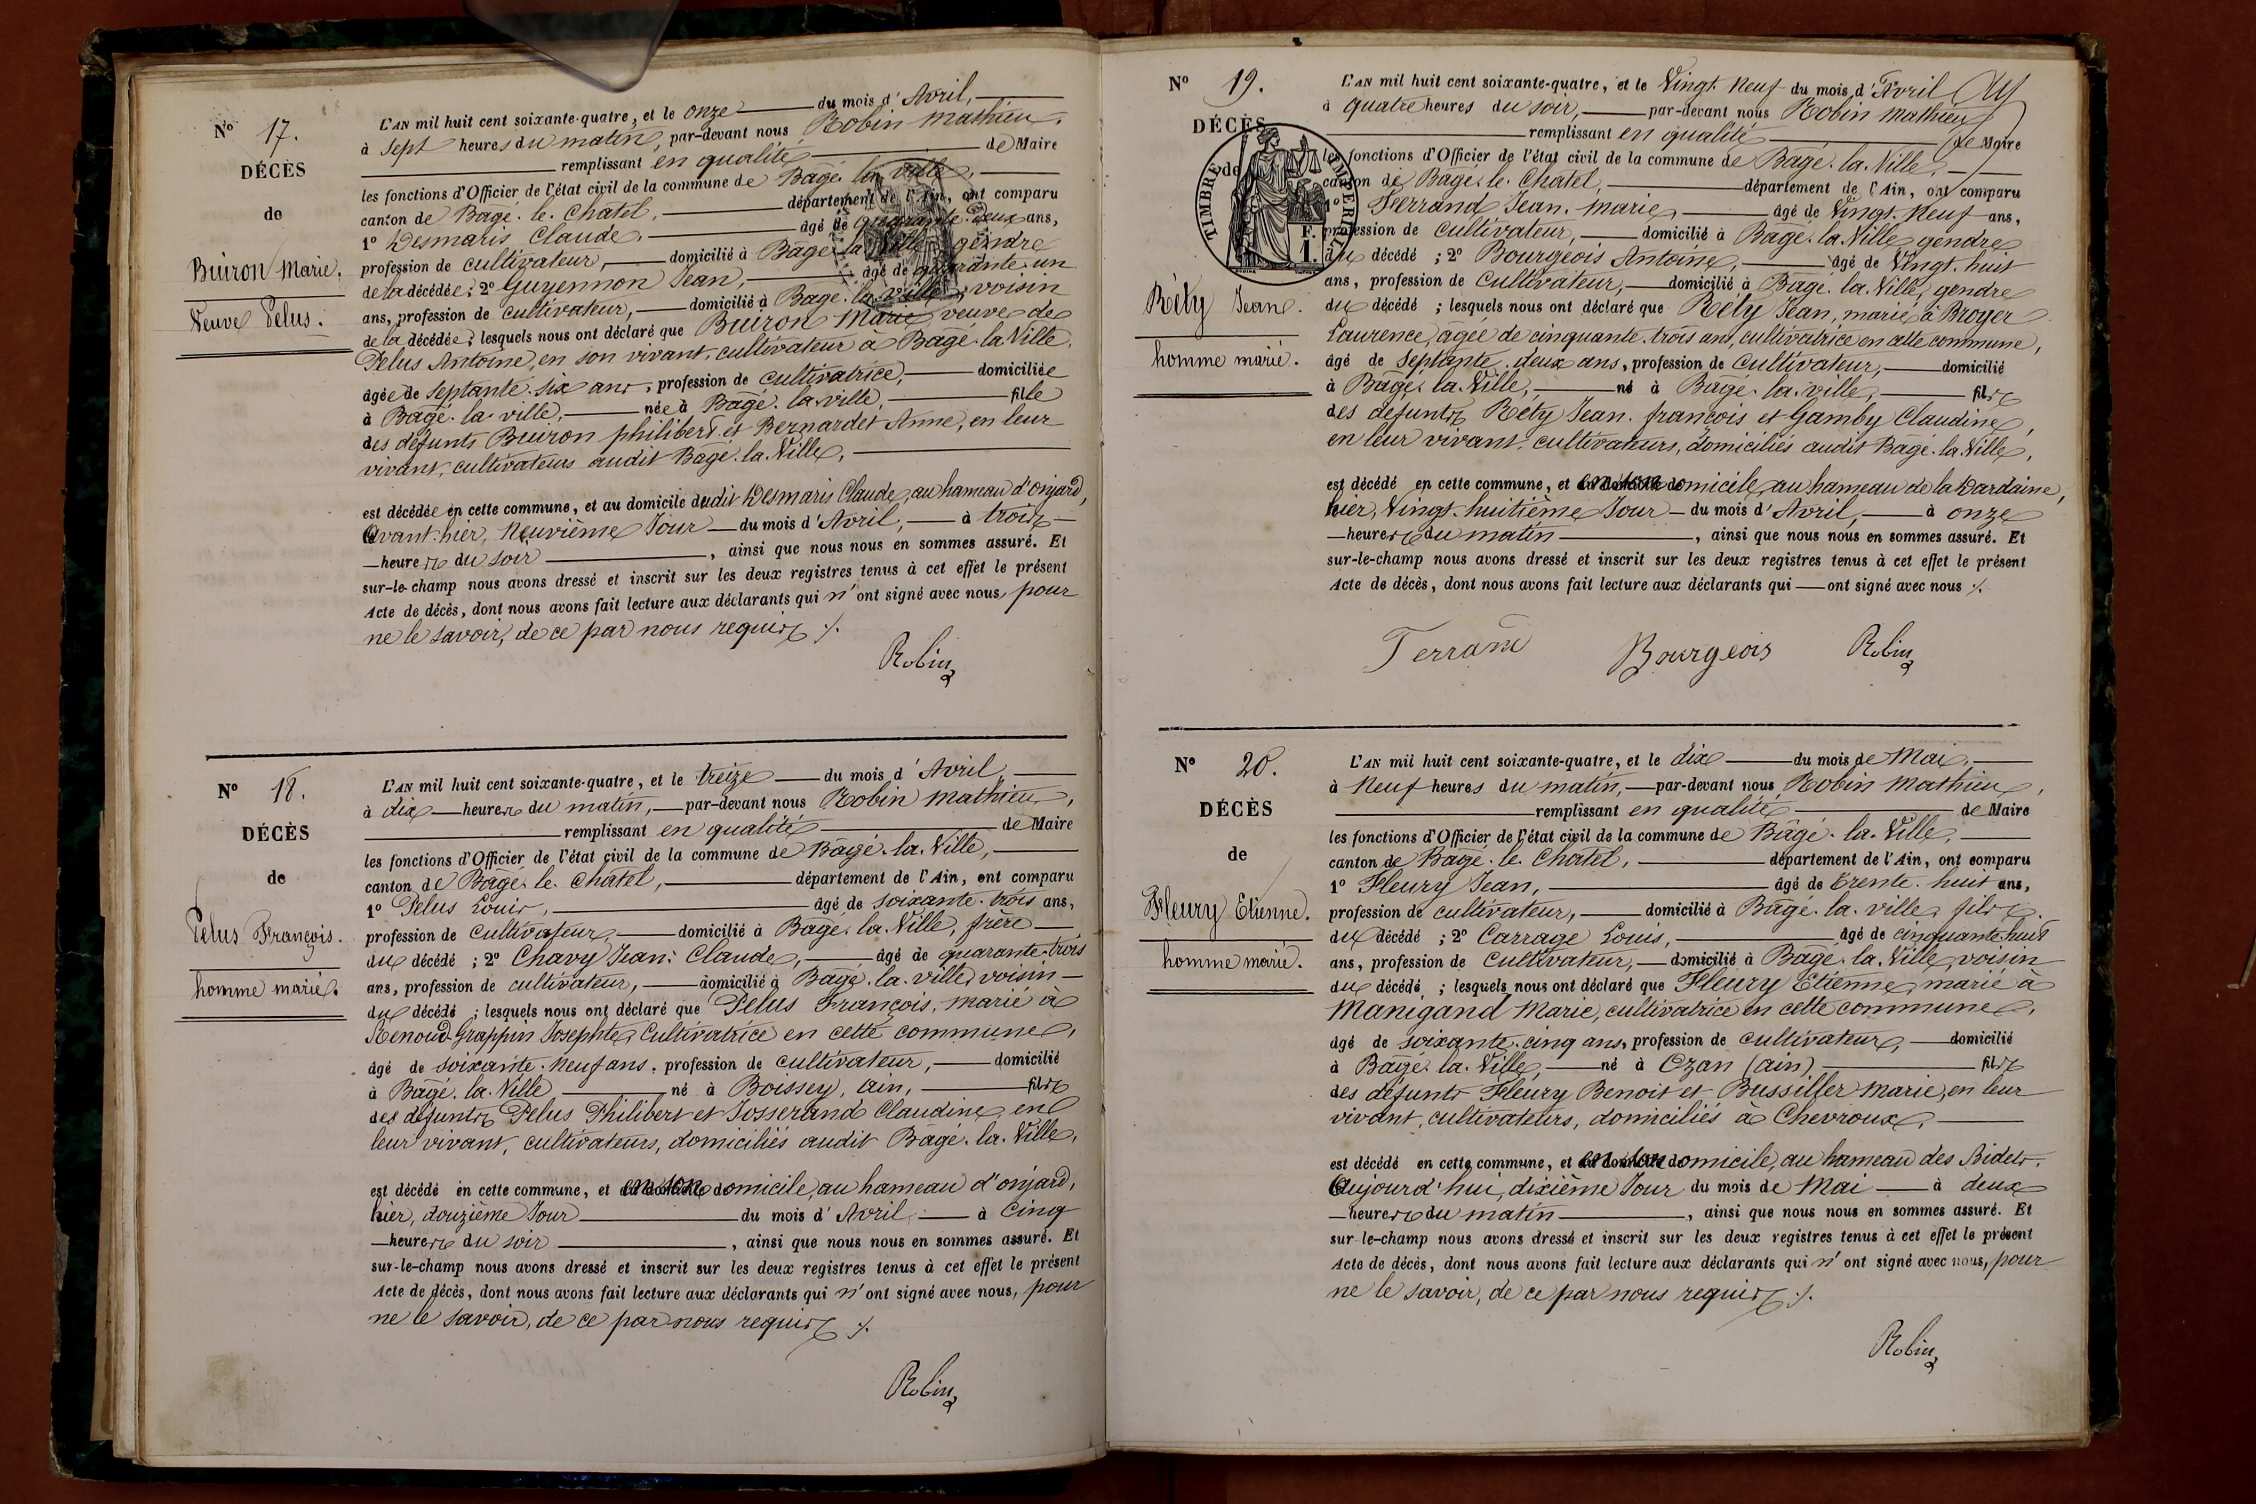 N° 17.
DÉCÈS
de
Buiron Marie.
Veuve Pelus.
L'AN mil huit cent soixante-quatre, et le onze du mois d'Avril,
à sept heures du matin, par-devant nous Robin Mathieu,
remplissant en qualité de Maire
les fonctions d'Officier de l'état civil de la commune de Bâgé-la-Ville,
canton de Bâgé-le-Châtel, département de l'Ain, ont comparu
1° Desmaris Claude, âgé de quarante-deux ans,
profession de cultivateur, domicilié à Bâgé-la-Ville, gendre
de la décédée ; 2° Guyennon Jean, âgé de quarante-un
ans, profession de cultivateur, domicilié à Bâgé-la-Ville, voisin
de la décédée ; lesquels nous ont déclaré que Buiron Marie, veuve de
Pelus Antoine, en son vivant, cultivateur à Bâgé-la-Ville,
âgée de septante-six ans, profession de cultivatrice, domiciliée
à Bâgé-la-Ville, née à Bâgé-la-Ville, fille
des défunts Buiron Philibert et Bernardet Anne, en leur
vivant, cultivateurs audit Bâgé-la-Ville,
est décédée en cette commune, et au domicile dudit Desmaris Claude, au hameau d'onjard,
Avant-hier, neuvième Jour du mois d'Avril, à trois
heures du soir, ainsi que nous nous en sommes assuré. Et
sur-le-champ nous avons dressé et inscrit sur les deux registres tenus à cet effet le présent
Acte de décès, dont nous avons fait lecture aux déclarants qui n'ont signé avec nous, pour
ne le savoir, de ce par nous requis ./.
Robin
N° 18.
DÉCÈS
de
Pelus François.
homme marié.
L'AN mil huit cent soixante-quatre, et le treize du mois d'Avril
à dix heures du matin, par-devant nous Robin Mathieu,
remplissant en qualité de Maire
les fonctions d'Officier de l'état civil de la commune de Bâgé-la-Ville,
canton de Bâgé-le-Châtel, département de l'Ain, ont comparu
1° Pelus Louis, âgé de soixante-trois ans,
profession de cultivateur, domicilié à Bâgé-la-Ville, frère
du décédé ; 2° Chavy Jean-Claude, âgé de quarante-trois
ans, profession de cultivateur, domicilié à Bâgé-la-Ville, voisin
du décédé ; lesquels nous ont déclaré que Pelus François, marié à
Renoud-Grappin Josephte, Cultivatrice en cette commune,
âgé de soixante-neuf ans, profession de cultivateur, domicilié
à Bâgé-la-Ville né à Boissey, ain, fils
des défunts Pelus Philibert et Josserand Claudine, en
leur vivant, cultivateurs, domiciliés audit Bâgé-la-Ville,
est décédé en cette commune, et en son domicile, au hameau d'onjard,
hier, douzième Jour du mois d'Avril, à cinq
heures du soir, ainsi que nous nous en sommes assuré. Et
sur-le-champ nous avons dressé et inscrit sur les deux registres tenus à cet effet le présent
Acte de décès, dont nous avons fait lecture aux déclarants qui n'ont signé avec nous, pour
ne le savoir, de ce par nous requis ./.
Robin
N° 19.
DÉCÈS
de
TIMBRE IMPÉRIAL
F.
1.
Réty Jean.
homme marié.
L'AN mil huit cent soixante-quatre, et le Vingt-Neuf du mois d'Avril
à quatre heures du soir, par-devant nous Robin Mathieu
remplissant en qualité de Maire
les fonctions d'Officier de l'état civil de la commune de Bâgé-la-Ville,
canton de Bâgé-le-Châtel, département de l'Ain, ont comparu
1° Ferrand Jean-Marie, âgé de Vingt-Neuf ans,
profession de cultivateur, domicilié à Bâgé-la-Ville gendre
du décédé ; 2° Bourgeois Antoine, âgé de Vingt-huit
ans, profession de cultivateur, domicilié à Bâgé-la-Ville, gendre
du décédé ; lesquels nous ont déclaré que Réty Jean, marié à Broyer
Laurence, âgée de cinquante-trois ans, cultivatrice en cette commune,
âgé de septante-deux ans, profession de cultivateur, domicilié
à Bâgé-la-Ville, né à Bâgé-la-Ville, fils
des défunts Réty Jean-françois et Gamby Claudine,
en leur vivant cultivateurs, domiciliés audit Bâgé-la-Ville,
est décédé en cette commune, et en son domicile, au hameau de la Dardaine,
hier, Vingt-huitième Jour du mois d'Avril, à onze
heures du matin, ainsi que nous nous en sommes assuré. Et
sur-le-champ nous avons dressé et inscrit sur les deux registres tenus à cet effet le présent
Acte de décès, dont nous avons fait lecture aux déclarants qui ont signé avec nous ./.
Ferrand Bourgeois Robin
N° 20.
DÉCÈS
de
Fleury Etienne.
homme marié.
L'AN mil huit cent soixante-quatre, et le dix du mois de Mai,
à Neuf heures du matin, par-devant nous Robin Mathieu,
remplissant en qualité de Maire
les fonctions d'Officier de l'état civil de la commune de Bâgé-la-Ville,
canton de Bâgé-le-Châtel, département de l'Ain, ont comparu
1° Fleury Jean, âgé de trente-huit ans,
profession de cultivateur, domicilié à Bâgé-la-ville, fils
du décédé ; 2° Carrage Louis, âgé de cinquante-huit
ans, profession de cultivateur, domicilié à Bâgé-la-Ville, voisin
du décédé ; lesquels nous ont déclaré que Fleury Etienne, marié à
Manigand Marie, cultivatrice en cette commune,
âgé de soixante-cinq ans, profession de cultivateur, domicilié
à Bâgé-la-Ville, né à Ozan (ain), fils
des défunts Fleury Benoit et Bussiller Marie, en leur
vivant, cultivateurs, domiciliés à Chevroux,
est décédé en cette commune, et en son domicile, au hameau des Bidets.
Aujourd'hui, dixième Jour du mois de Mai à deux
heures du matin, ainsi que nous nous en sommes assuré. Et
sur-le-champ nous avons dressé et inscrit sur les deux registres tenus à cet effet le présent
Acte de décès, dont nous avons fait lecture aux déclarants qui n'ont signé avec nous, pour
ne le savoir, de ce par nous requis ./.
Robin